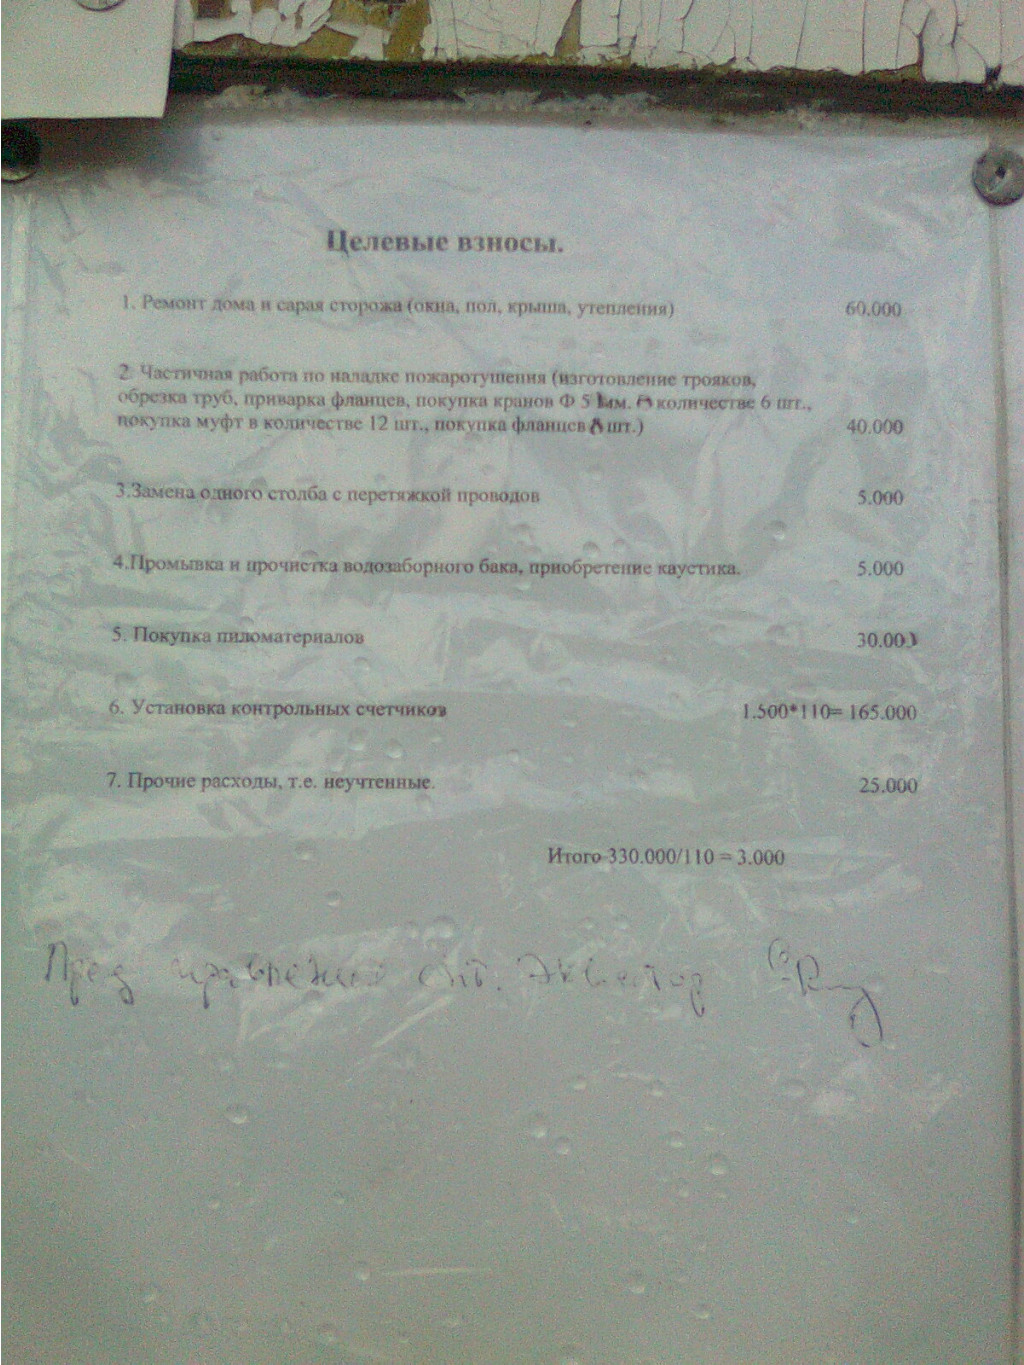 Целевые взносы.
1. Ремонт дома и сарая сторожа (окна, пол, крыша, утепления) 60.000
2. Частичная работа по наладке пожаротушения (изготовление трояков,
обрезка труб, приварка фланцев, покупка кранов Ф 5 мм. количестве 6 шт.,
покупка муфт в количестве 12 шт., покупка фланцев шт.) 40.000
3.Замена одного столба с перетяжкой проводов 5.000
4.Промывка и прочистка водозаборного бака, приобретение каустика. 5.000
5. Покупка пиломатериалов 30.000
6. Установка контрольных счетчиков 1.500*110= 165.000
7. Прочие расходы, т.е. неучтенные. 25.000
Итого 330.000/110 = 3.000
Пред правления